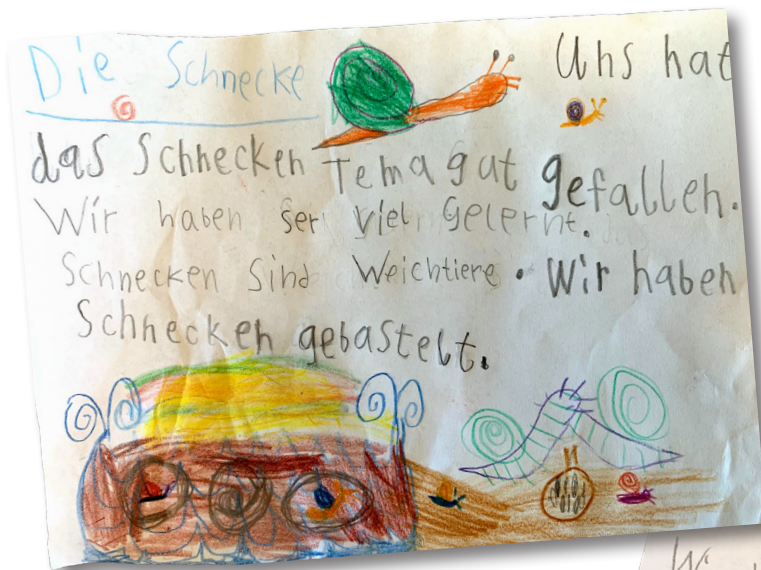 Die Schnecke
Uns hat
das Schnecken Tema gut gefallen.
Wir haben ser viel Gelernt.
Schnecken Sind Weichtiere. Wir haben
Schnecken gebastelt.